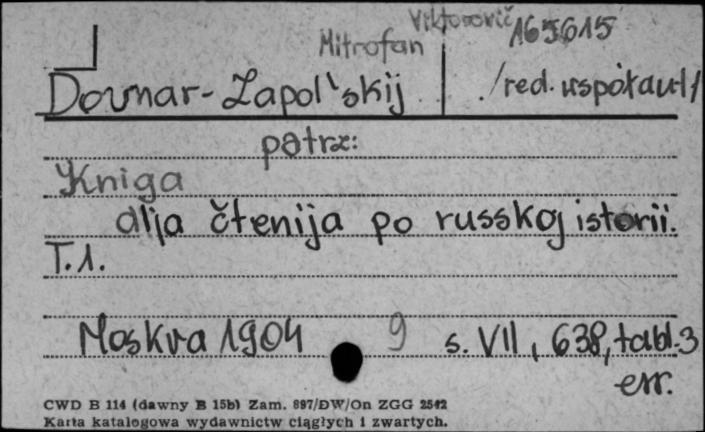 Viktorovič 165615
Mitrofan
Dovnar-Zapol'skij /red. współaut/
patrz:
Kniga
dlja čtenija po russkoj istorii.
T.1.
Moskva 1904 9 s. VII, 638, tabl. 3
err.
CWD B 114 (dawny B 15b) Zam. 897/DW/On ZGG 2542
Karta katalogowa wydawnictw ciągłych i zwartych.